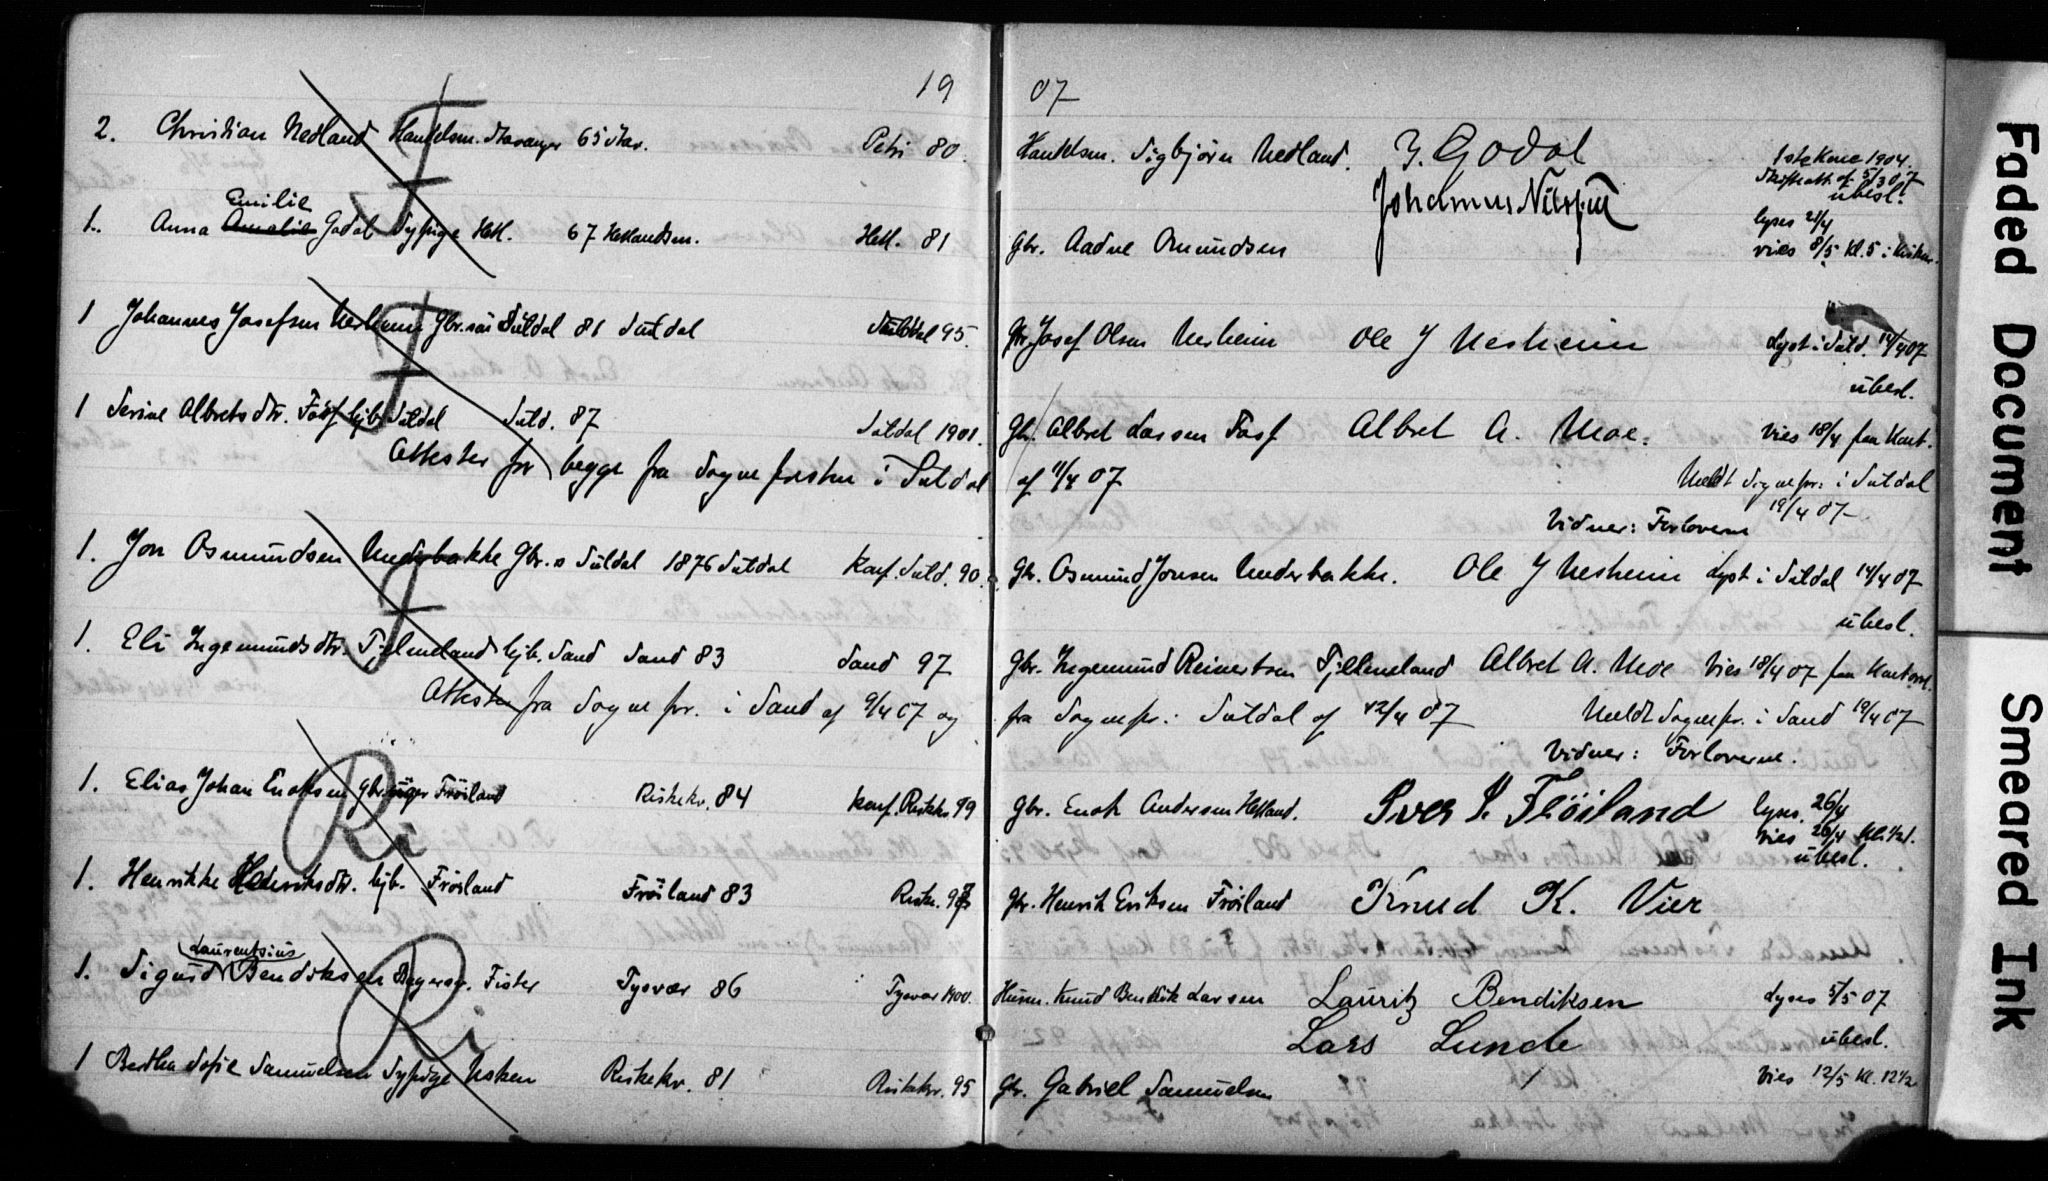 19 07
2. Christian Nedland Handelsm. Stavanger 65 Stav. Petri 80. Handelsm. Sigbjørn Nedland. Y. Godal 1ste Kone 1904.
Skifteatt. af 5/3 07
Johannes Nilsen ubesl.
Emilie
1. Anna Amalie Godal Sypige Hetl. 67 Hetlandsm. Hetl. 81 Gbr. Aadne Omundsen lyses 21/4
vies 8/5 Kl. 5 i Kirken.
1 Johannes Josefsen Nesheim Gbr.søn Suldal 81 Suldal Suldal 95. Gbr. Josef Olsen Nesheim Ole J Nesheim Lyst i Suld. 14/4 07
ubesl.
1 Serine Albretsdtr. Fosf hjb. Suldal Suld. 87 Suldal 1901. Gbr. Albret Larsen Fosf Albret A. Moe. Vies 18/4 paa Kont.
Attester for begge fra Sognepresten i Suldal af 11/4 07 Meldt Sognepr. i Suldal
19/4 07
Vidner: Forloverne
1. Jon Osmundsen Underbakke Gbr.s Suldal 1876 Suldal Konf. Suld. 90. Gbr. Osmund Jonsen Underbakke. Ole J Nesheim Lyst i Suldal 14/4 07
ubesl.
1. Eli Ingemundsdtr. Tjelmeland hjb. Sand Sand 83 Sand 97 Gbr. Ingemund Reinertsen Tjelmeland Albret A. Moe Vies 18/4 07 paa Kontoret.
Attester fra Sognepr. i Sand af 9/4 07 og fra Sognepr. i Suldal af 12/4 07 Meldt Sognepr. i Sand 19/4 07
Vidner: Forloverne.
1. Elias Johan Enoksen Gbr. Frøiland Riskekv. 84 Konf. Riskekv. 99 Gbr. Enok Andersen Helland. Iver I. Frøiland lyses. 26/4
vies 26/4 Kl. 1/2 1.
ubesl.
1. Henrikke Henriksdtr. hjb. Frøiland Frøiland 83 Riskekv. 97 Gbr. Henrik Eriksen Frøiland Knud K. Vier
Laurentsius
1. Sigurd Bendiksen Bagersv. Fister Tysvær 86 Tysvær 1900. Husm. Knud Bendik Larsen Lauritz Bendiksen Lyses 5/5 07
Lars Lunde ubesl.
1 Bertha Sofie Samuelsen Sypige Usken Riskekv. 81 Riskekv. 95 Gbr. Gabriel Samuelsen Vies 12/5 Kl. 12 1/2
F
F
F
Ri
Ri
Faded Document
Smeared Ink